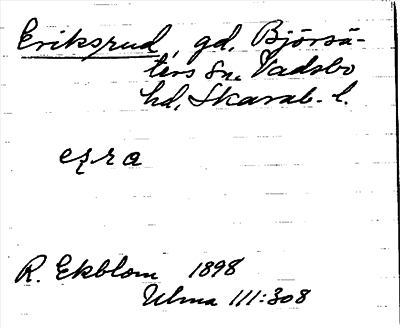 Eriksrud, gd, Björsä-
ters sn, Vadsbo
hd, Skarab. l.
R. Ekblom 1898
Ulma 111:308